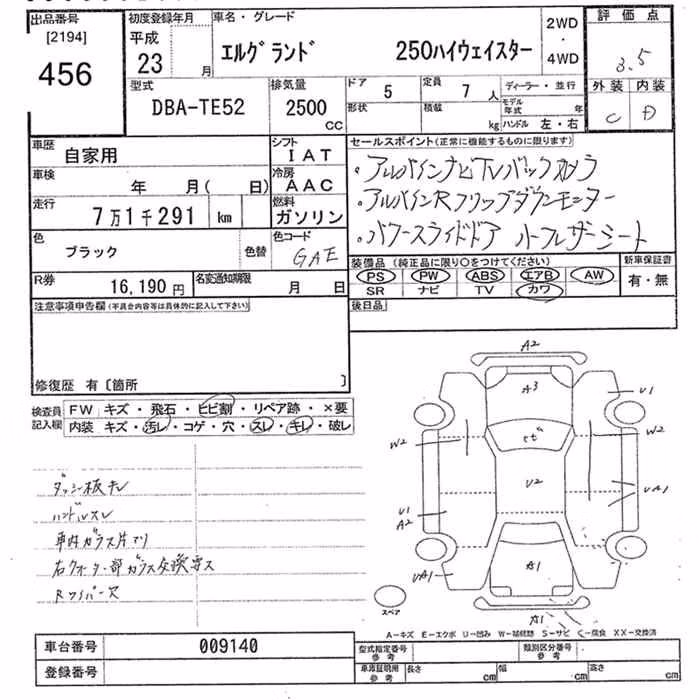 出品番号
[2194]
456
初度登録年月
平成
23 月
車名・グレード
エルグランド 250ハイウェイスター
2WD
・
4WD
評価点
3.5
外装 内装
C D
型式
DBA-TE52
排気量
2500
CC
ドア 5
形状
定員 7 人
積載 kg
ディーラー・並行
モデル年式 年
ハンドル 左・右
車歴
自家用
シフト
IAT
車検
年 月( 日)
冷房
AAC
走行
7万1千291 km
燃料
ガソリン
色
ブラック
色替
色コード
GAE
R券
16,190円
名変通知期限
月 日
セールスポイント(正常に機能するものに限ります)
・アルパインナビTVバックカメラ
・アルパインRフリップダウンモニター
・パワースライドドア ハーフレザーシート
装備品(純正品に限り○をつけてください)
PS PW ABS エアB AW
SR ナビ TV カワ
新車保証書
有・無
後日品
注意事項申告欄(不具合内容等は具体的に記入して下さい)
修復歴 有〔箇所 〕
検査員記入欄
FW キズ・飛石・ヒビ割・リペア跡・×要
内装 キズ・汚レ・コゲ・穴・スレ・キレ・破レ
ダッシュ板キレ
ハンドルスレ
右クォーター部ガラス交換
Rワイパー欠
A2
A3
U1
W2
ヒビ
W2
U2
U1
A2
UA1
UA1
A1
A1
スペア
A-キズ E-エクボ U-凹み W-補修跡 S-サビ C-腐食 XX-交換済
車台番号 009140
登録番号
型式指定番号
参考
類別区分番号
参考
車庫証明用
参考
長さ cm 幅 cm 高さ cm